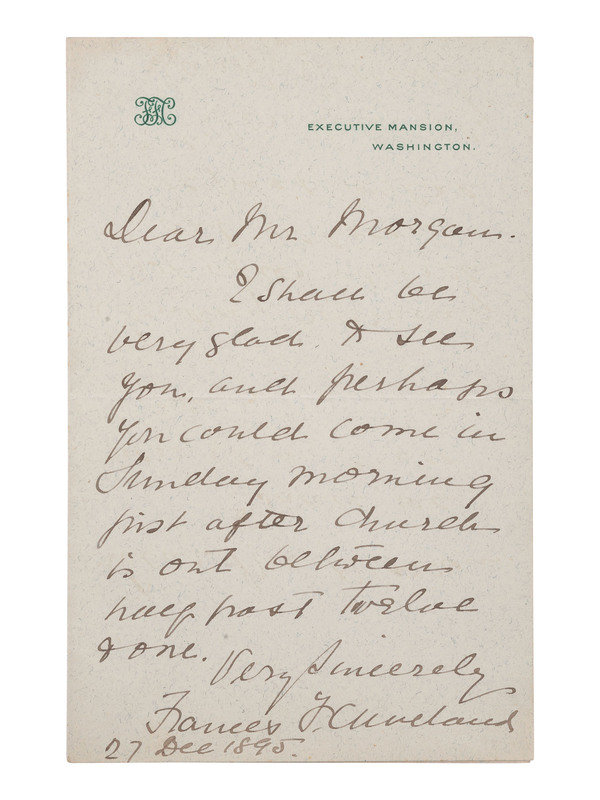 EXECUTIVE MANSION,
WASHINGTON.
Dear Mr Morgan.
I shall be
very glad to see
you, and perhaps
you could come in
Sunday morning
just after church
is out between
half past twelve
& one.
Very Sincerely
Frances F Cleveland
27 Dec 1895.